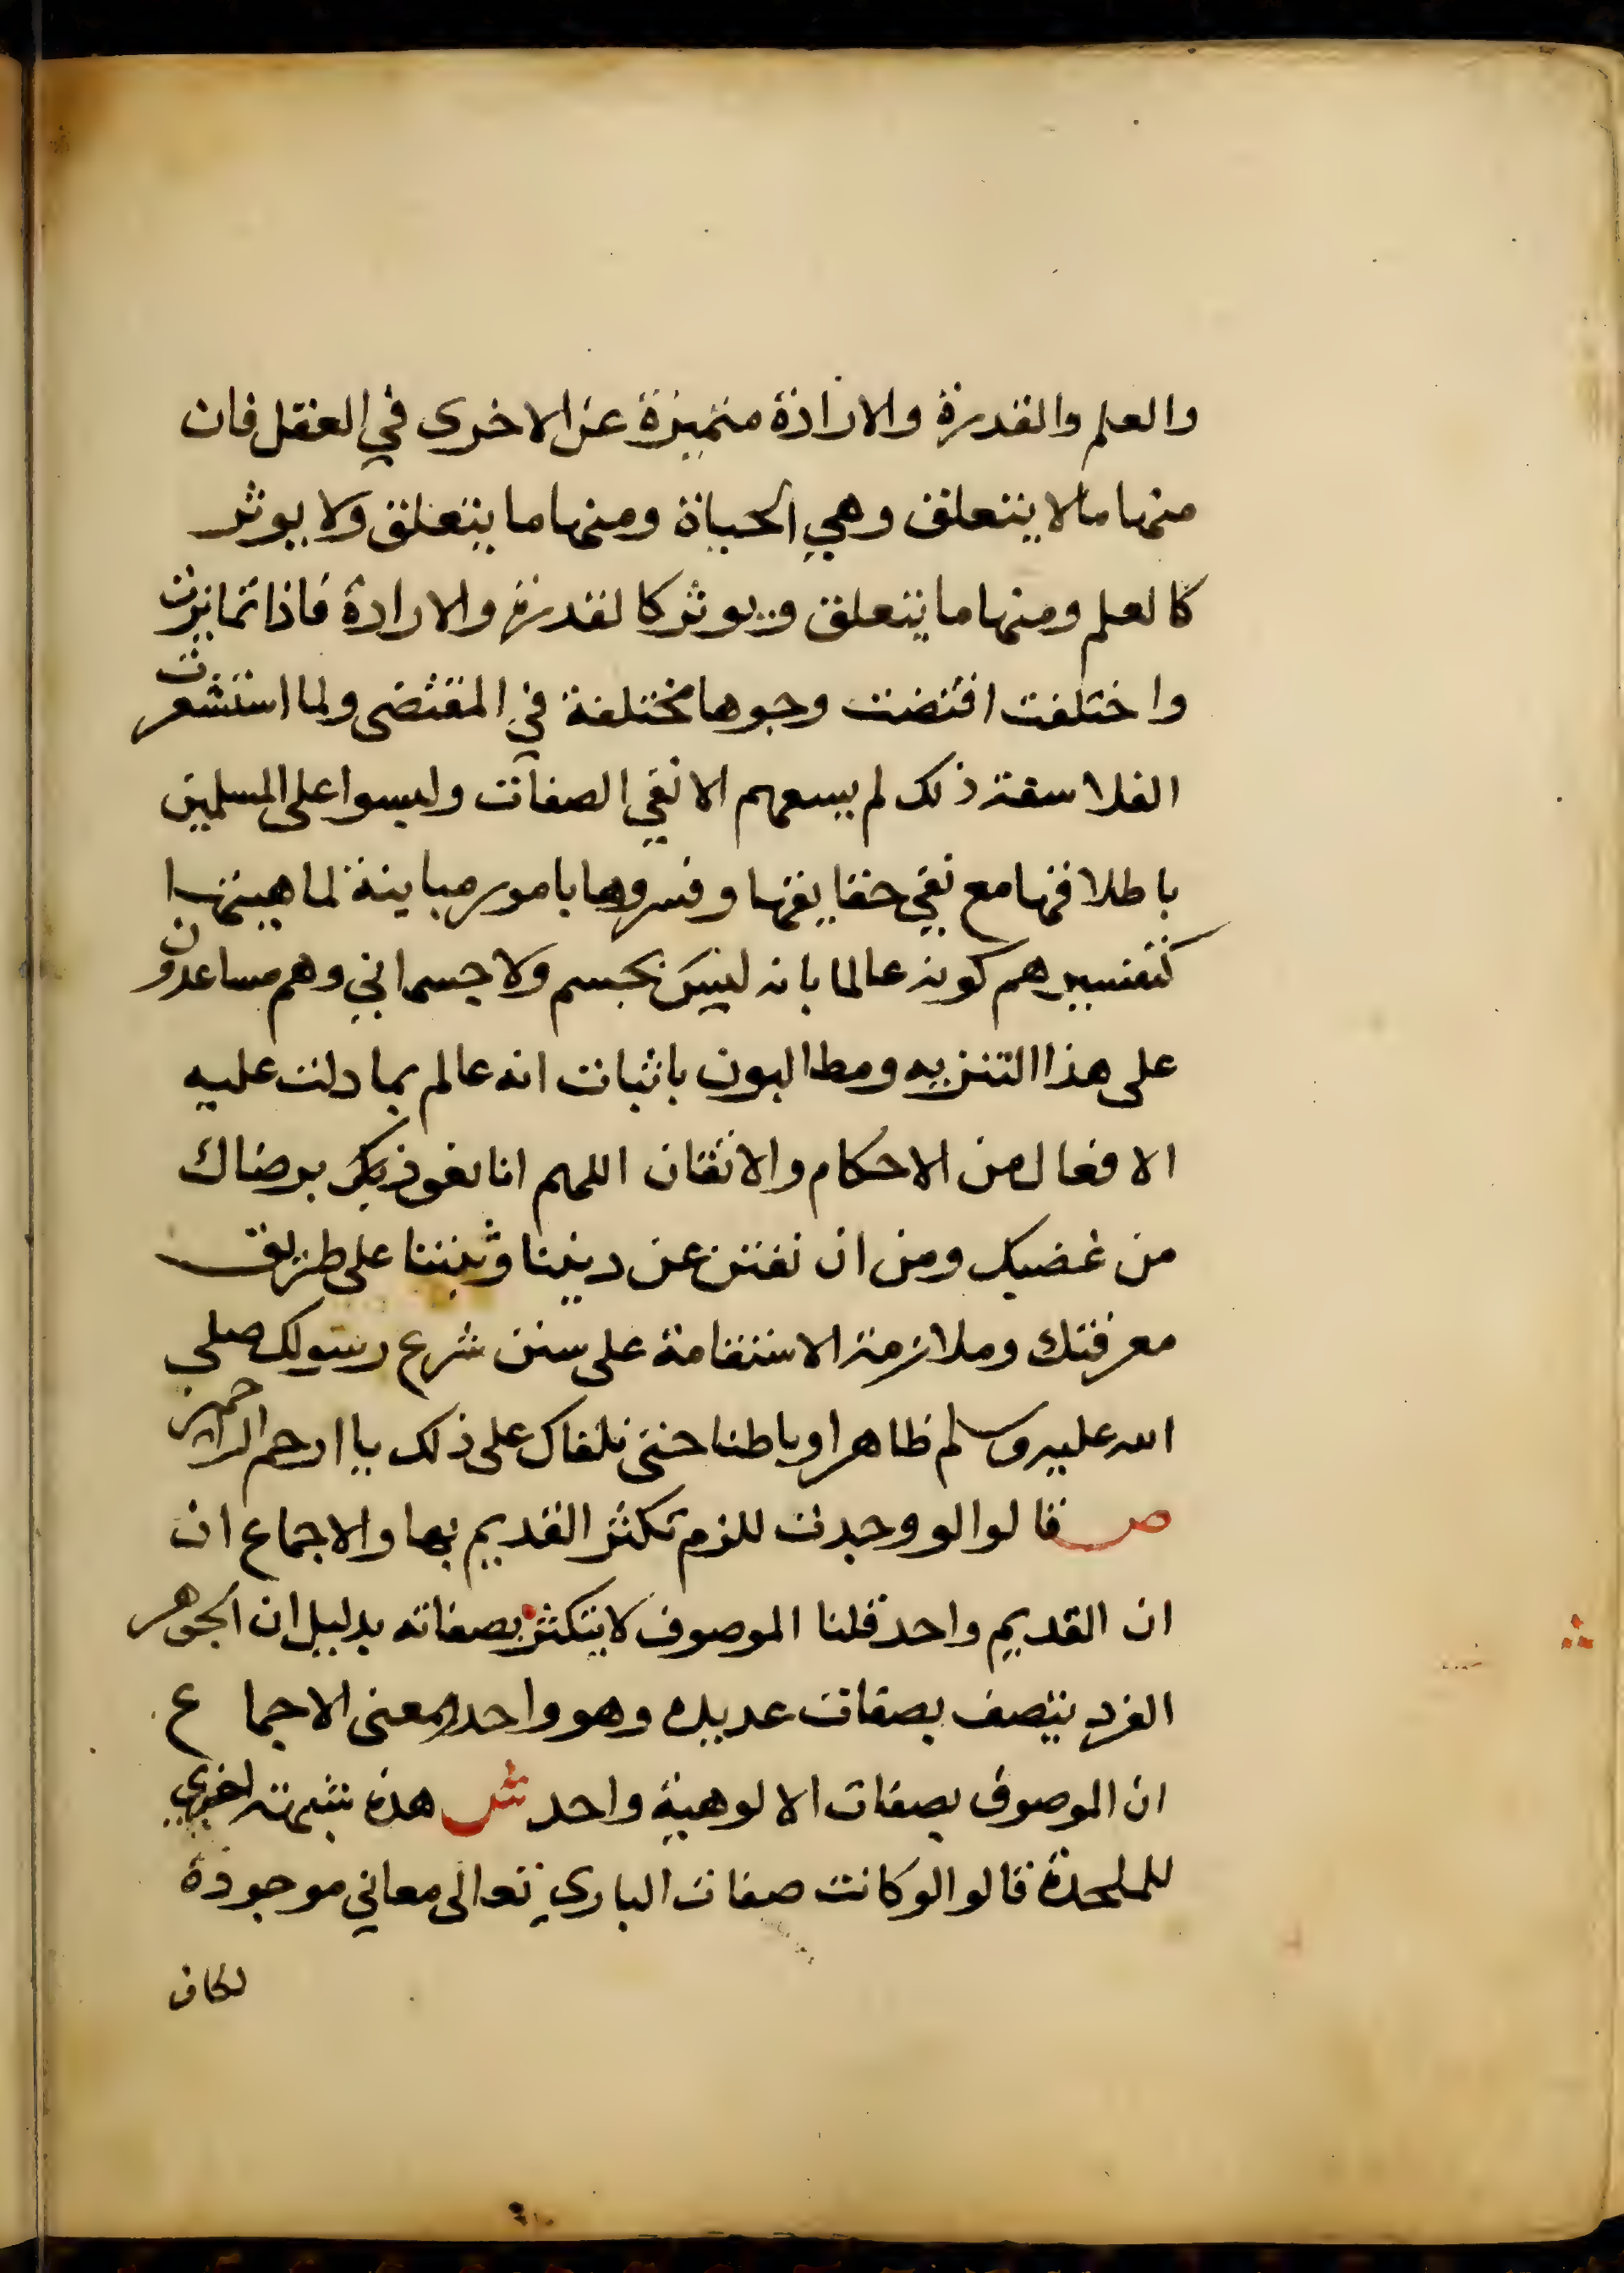 والعلم والقدرة والارادة متميزة عن الاخرى في العقل فان
منها ما لا يتعلق وهي الحياة ومنها ما يتعلق ولا يوثر
كالعلم ومنها ما يتعلق ويوثر كالقدرة والارادة فاذا تمايزت
واختلفت اقتضت وجوها مختلفة في المقتضى ولما استشعرت
الفلاسفة ذلك لم يسعهم الا نفي الصفات ولبسوا على المسلمين
باطلاقها مع نفي حقايقها وفسروها بامور مباينة لماهيتها
كتفسيرهم كونه عالما بانه ليس بجسم ولا جسماني وهم مساعدون
على هذا التنزيه ومطالبون باثبات انه عالم بما دلت عليه
الافعال من الاحكام والاتقان اللهم انا نعوذ بك برضاك
من غضبك ومن ان نفتن عن ديننا وثبتنا على طريق
معرفتك وملازمة الاستقامة على سنن شرع رسولك صلى
الله عليه وسلم ظاهرا وباطنا حتى نلقاك على ذلك يا ارحم الراحمين
ص قالوا لو وجدت للزم تكثر القديم بها والاجماع ان
ان القديم واحد قلنا الموصوف لا يتكثر بصفاته بدليل ان الجوهر
الفرد يتصف بصفات عديده وهو واحد ومعنى الاجماع
ان الموصوف بصفات الالوهية واحد ش هذه شبهة اخرى
للملحدة قالوا لو كانت صفات الباري تعالى معاني موجودة
لكان